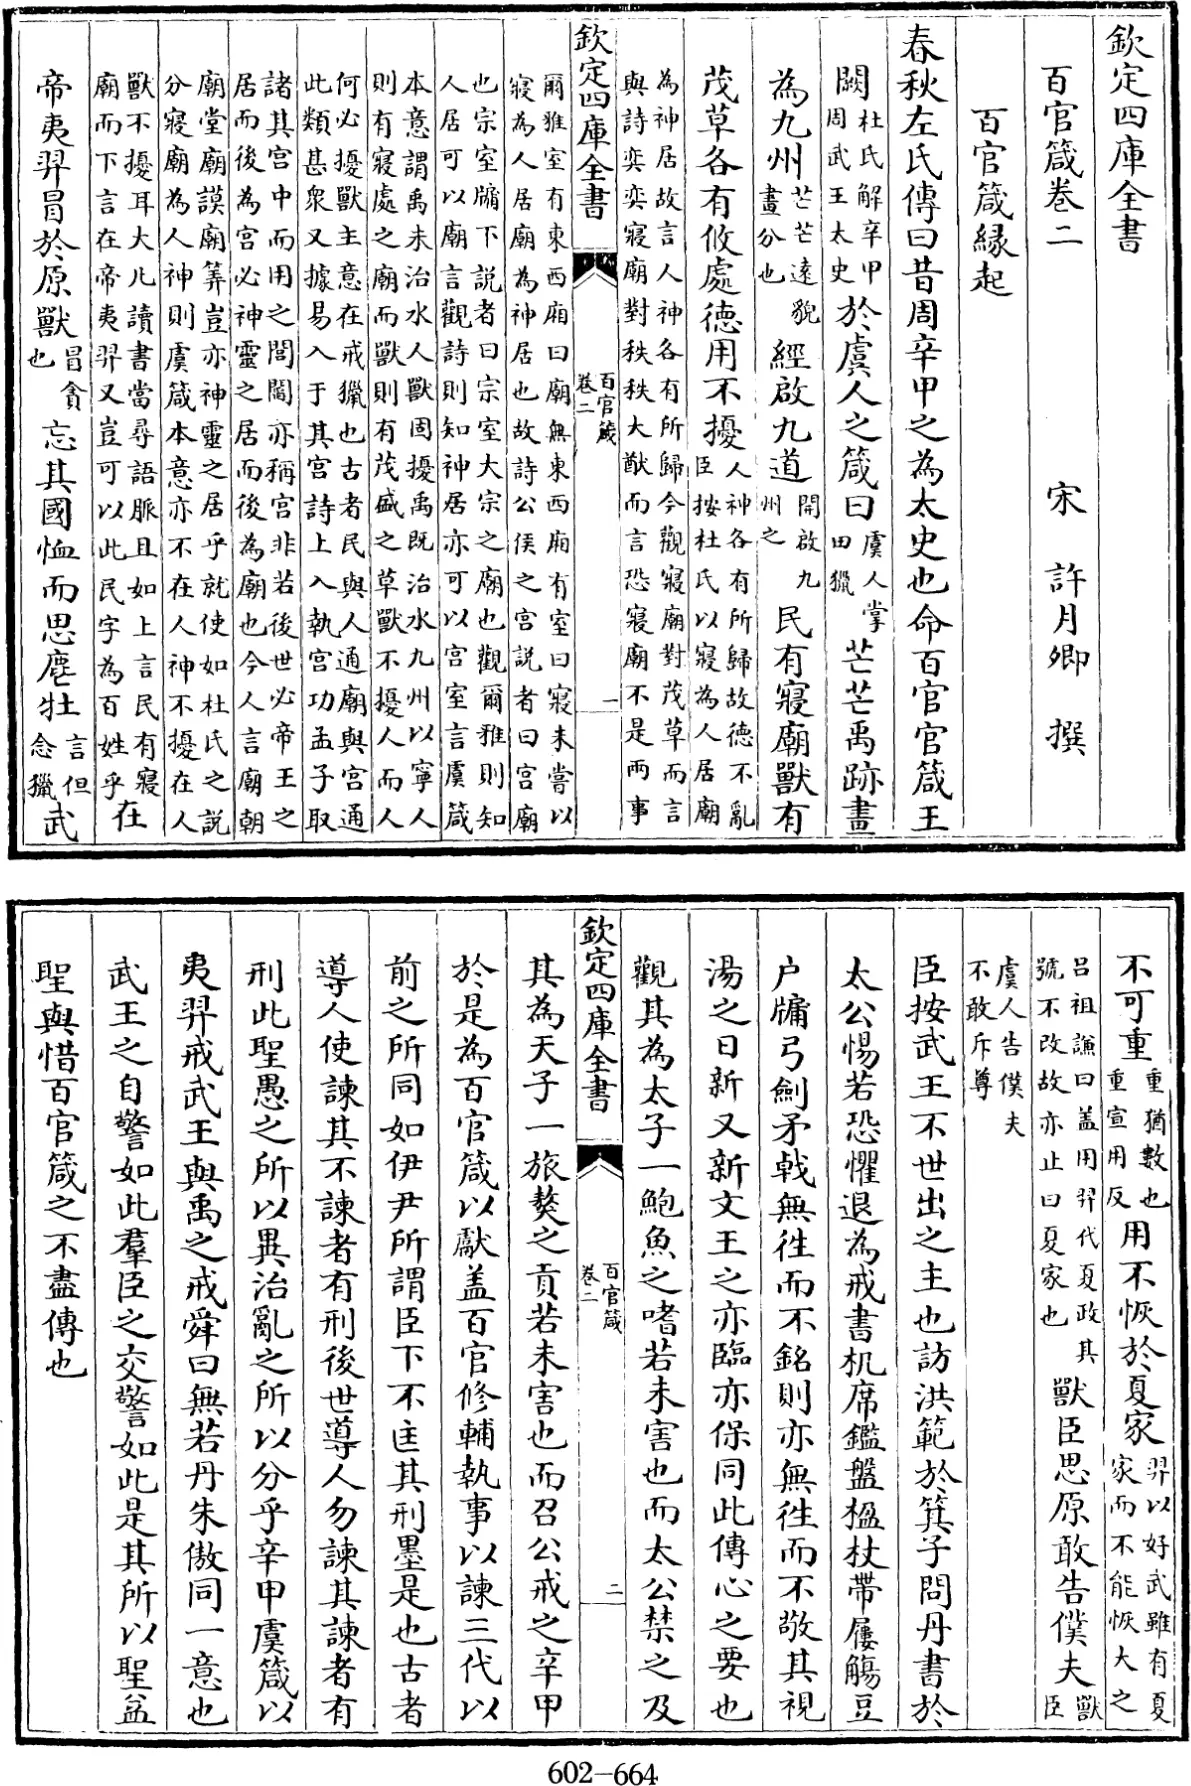 欽定四庫全書
百官箴巻二　宋　許月卿　撰
百官箴縁起
春秋左氏傳曰昔周辛甲之為太史也命百官官箴王
闕杜氏解辛甲周武王太史於虞人之箴曰虞人掌田獵芒芒禹跡畫
為九州芒芒遠貌畫分也經啟九道開啟九州之民有寢廟獸有
茂草各有攸處德用不擾人神各有所歸故德不亂臣按杜氏以寢為人居廟
為神居故言人神各有所歸今觀寢廟對茂草而言
與詩奕奕寢廟對秩秩大猷而言恐寢廟不是兩事
欽定四庫全書　百官箴　卷二　一
爾雅室有東西廂曰廟無東西廂有室曰寢未嘗以
寢為人居廟為神居也故詩公侯之宮説者曰宮廟
也宗室牖下説者曰宗室大宗之廟也觀爾雅則知
人居可以廟言觀詩則知神居亦可以宮室言虞箴
本意謂禹未治水人獸固擾禹既治水九州以寧人
則有寢處之廟而獸則有茂盛之草獸不擾人而人
何必擾獸主意在戒獵也古者民與人通廟與宮通
此類甚衆又據易入于其宮詩上入執宮功孟子取
諸其宮中而用之閭閻亦稱宮非若後世必帝王之
居而後為宮必神靈之居而後為廟也今人言廟朝
廟堂廟謨廟筭豈亦神靈之居乎就使如杜氏之説
分寢廟為人神則虞箴本意亦不在人神不擾在人
獸不擾耳大凡讀書當尋語脈且如上言民有寢
廟而下言在帝夷羿又豈可以此民字為百姓乎在
帝夷羿冒於原獸冒貪也忘其國恤而思麀牡言但念獵武
不可重重猶數也重宣用反用不恢於夏家羿以好武雖有夏家而不能恢大之
呂祖謙曰盖用羿代夏政其號不改故亦止曰夏家也獸臣思原敢告僕夫獸臣
虞人告僕夫不敢斥尊
臣按武王不世出之主也訪洪範於箕子問丹書於
太公惕若恐懼退為戒書机席鑑盤楹杖帶屨觴豆
户牖弓劍矛戟無徃而不銘則亦無徃而不敬其視
湯之日新又新文王之亦臨亦保同此傳心之要也
觀其為太子一鮑魚之嗜若未害也而太公禁之及
欽定四庫全書　百官箴　卷二　二
其為天子一旅獒之貢若未害也而召公戒之辛甲
於是為百官箴以獻盖百官修輔執事以諫三代以
前之所同如伊尹所謂臣下不匡其刑墨是也古者
導人使諫其不諫者有刑後世導人勿諫其諫者有
刑此聖愚之所以異治亂之所以分乎辛甲虞箴以
夷羿戒武王與禹之戒舜曰無若丹朱傲同一意也
武王之自警如此羣臣之交警如此是其所以聖益
聖與惜百官箴之不盡傳也
602-664